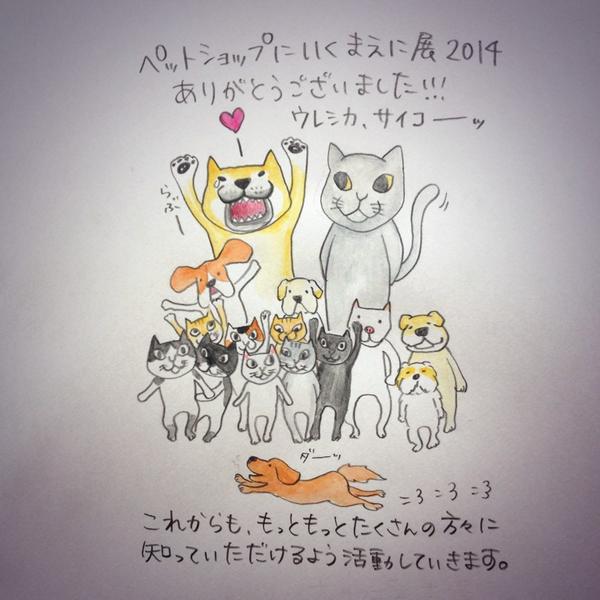 ペットショップにいくまえに展2014
ありがとうございました!!!
ウレシカ、サイコーッ
らぶー
ダーッ
これからも、もっともっとたくさんの方々に
知っていただけるよう活動していきます。